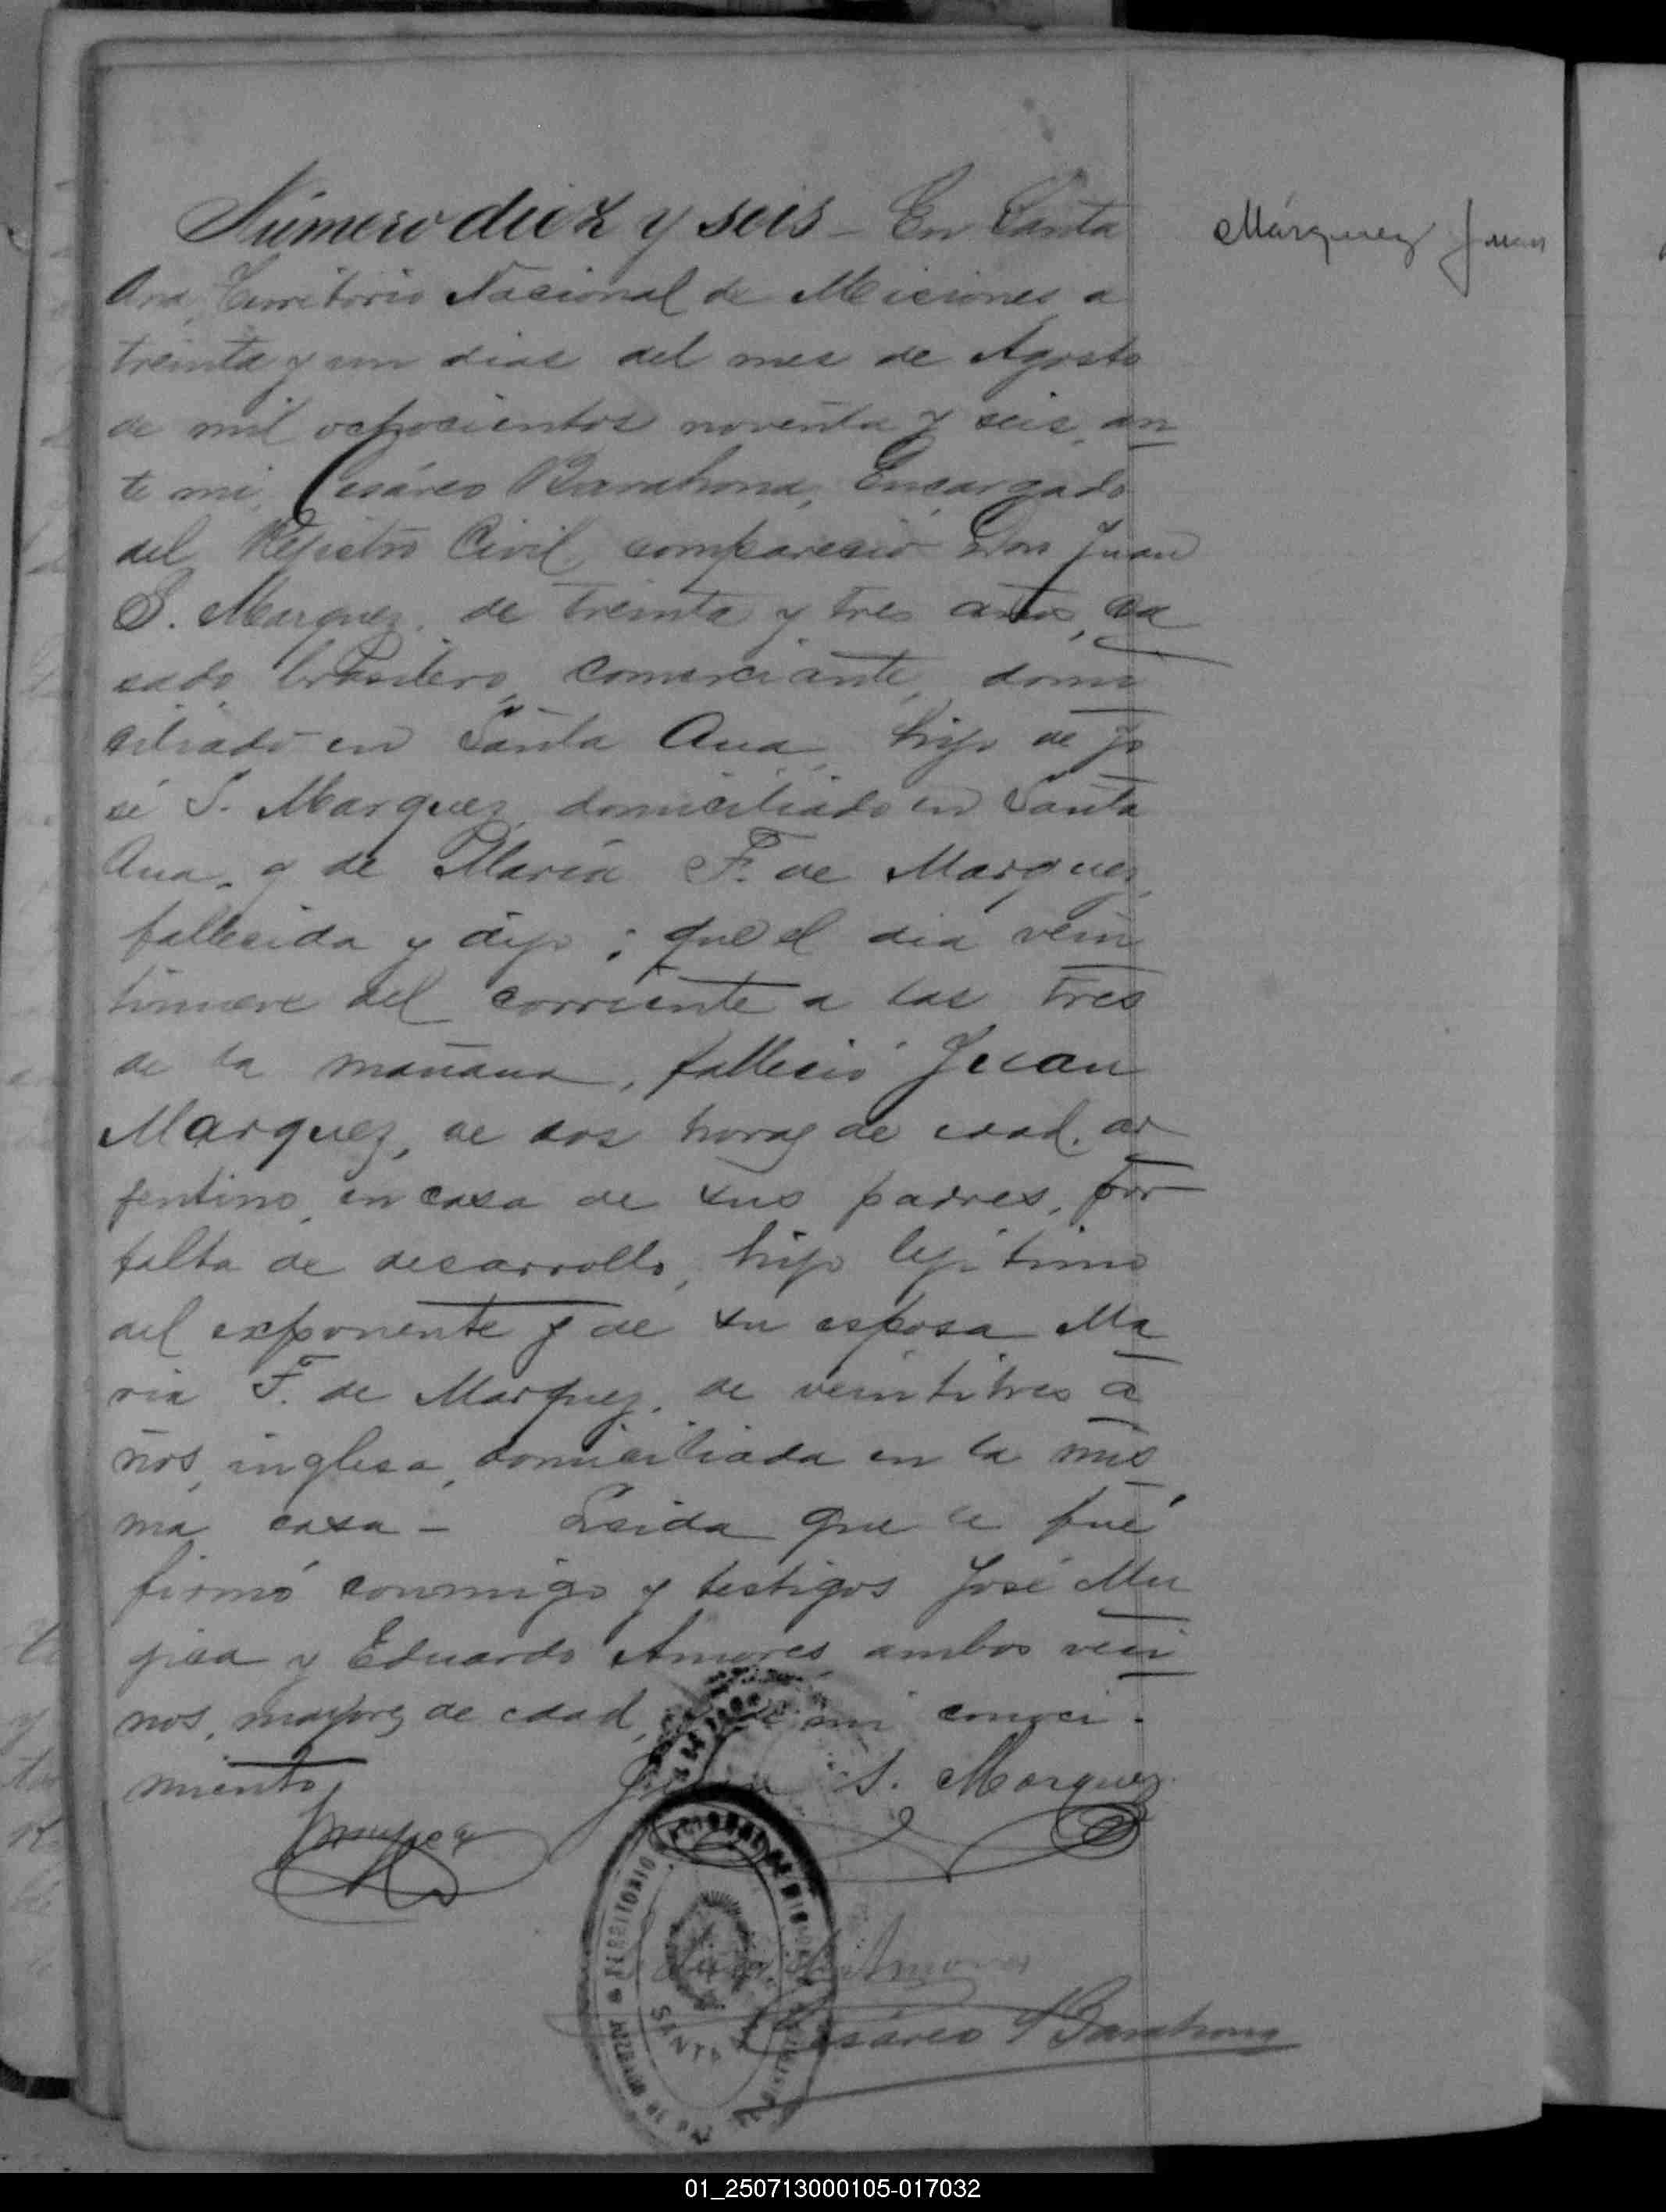 Número diez y seis - En Santa
Márquez Juan
Ana, Territorio Nacional de Miciones, a
treinta y un dias del mes de Agosto
de mil ochocientos noventa y seis, an
te mi, Cesáreo Barahona, Encargado
del Registro Civil, compareció Don Juan
S. Marquez, de treinta y tres años, ca
sado, brasilero, comerciante, domi
ciliado en Santa Ana, hijo de Jo
sé S. Marquez, domiciliado en Santa
Ana, y de María F. de Marquez,
fallecida y dijo: que el dia vein
tinueve del corriente a las tres
de la mañana, falleció Juan
Marquez, de dos horas de edad, ar
gentino, en casa de sus padres, por
falta de desarrollo, hijo lejitimo
del exponente y de su esposa Ma
ria F. de Marquez, de veintitres a
ños, inglesa, domiciliada en la mis
ma casa - Leida que le fué
firmó conmigo y testigos José Mu
jica y Eduardo Amores ambos veci
nos, mayores de edad, de mi conoci-
miento,
Juan S. Marquez
Amores
Cesáreo Barahona
TERRITORIO NACIONAL DE MISIONES
JUZGADO DE PAZ
SANTA
01_250713000105-017032